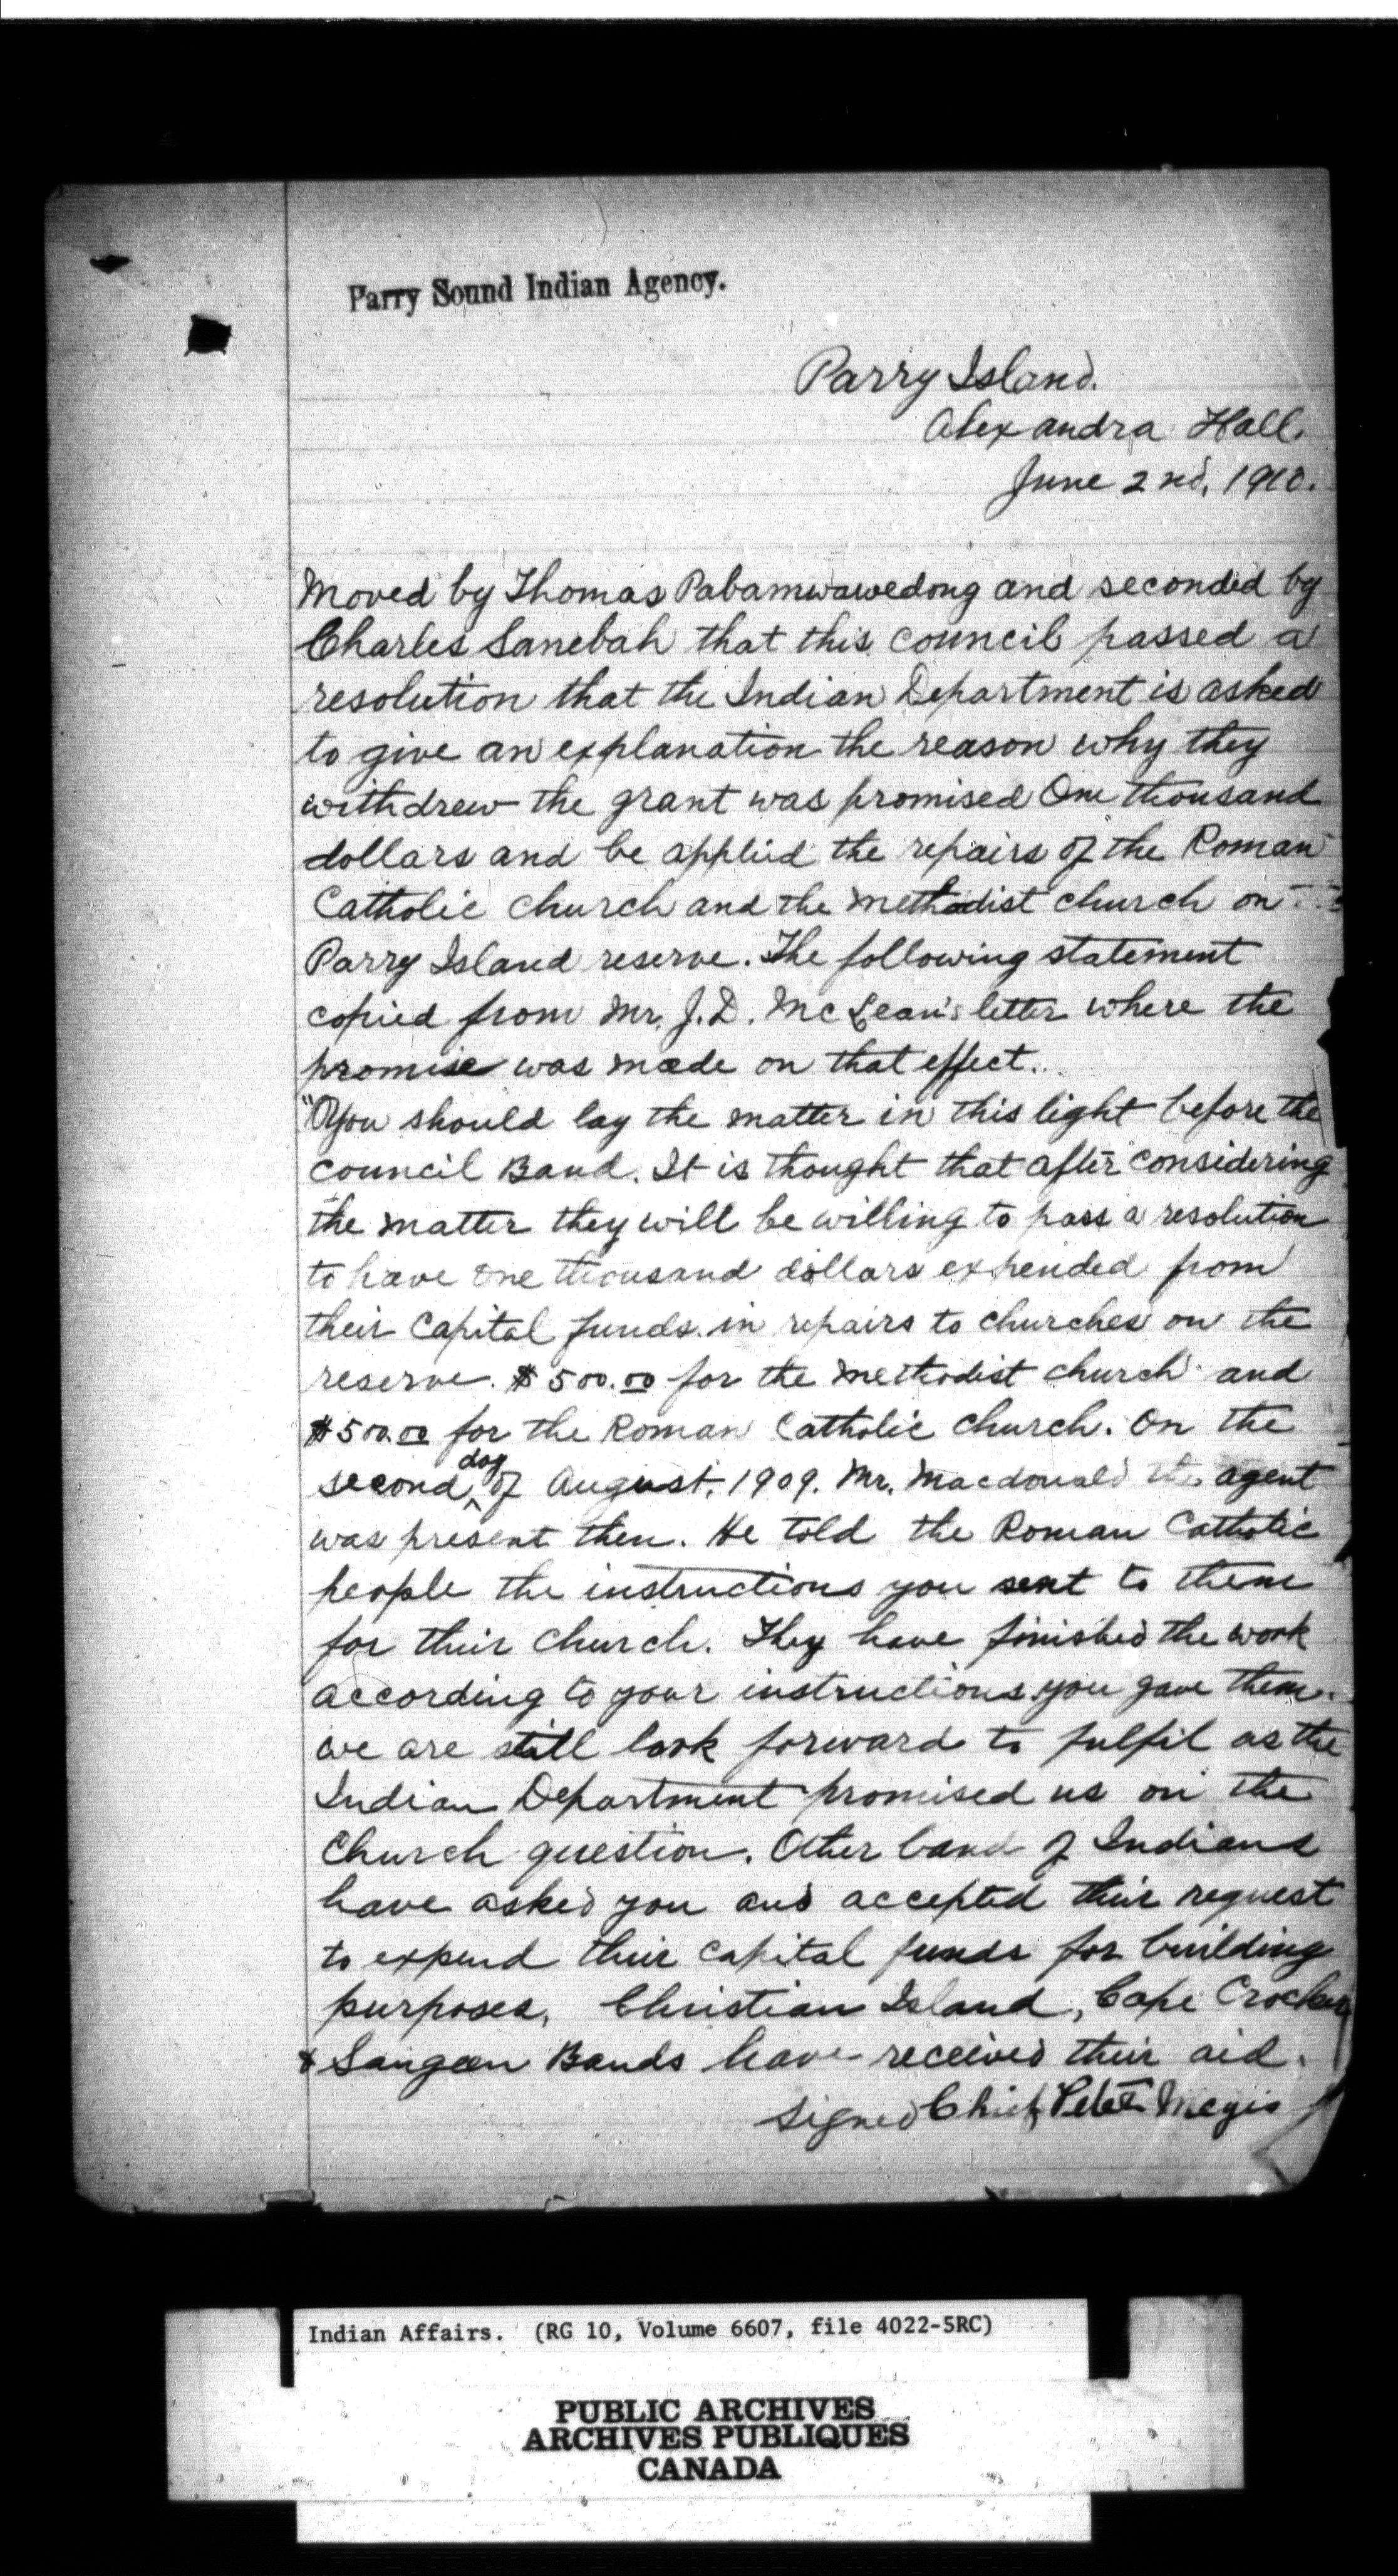 Parry Sound Indian Agency.
Parry Island.
Alexandra Hall.
June 2nd, 1910.
Moved by Thomas Pabamwawedong and seconded by
Charles Sanebah that this council passed a
resolution that the Indian Department is asked
to give an explanation the reason why they
withdrew the grant was promised One thousand
dollars and be applied the repairs of the Roman
Catholic church and the Methodist church on
Parry Island reserve. The following statement
copied from Mr. J.D. McLean's letter where the
promise was made on that effect.
"You should lay the matter in this light before the
council Band. It is thought that after considering
the matter they will be willing to pass a resolution
to have one thousand dollars expended from
their Capital funds in repairs to churches on the
reserve. $500.00 for the Methodist church and
$500.00 for the Roman Catholic church. On the
second day of August, 1909. Mr. Macdonald the agent
was present then. He told the Roman Catholic
people the instructions you sent to them
for their church. They have finished the work
according to your instructions you gave them.
we are still look forward to fulfil as the
Indian Department promised us on the
Church question. Other band of Indians
have asked you and accepted their request
to expend their capital funds for building
purposes, Christian Island, Cape Crocker
& Saugeen Bands have received their aid.
Signed Chief Peter Megis
Indian Affairs. (RG 10, Volume 6607, file 4022-5RC)
PUBLIC ARCHIVES
ARCHIVES PUBLIQUES
CANADA